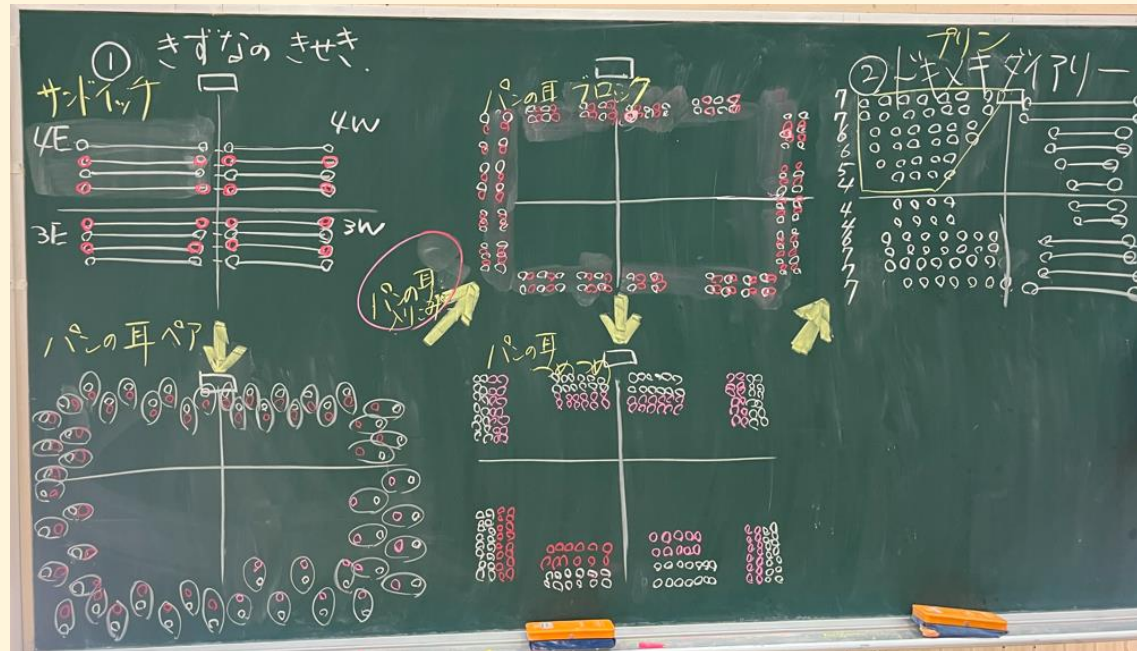 ① きずなの きせき
サンドイッチ
4E
4W
3E
3W
パンの耳ペア
パンの耳
パンの耳 ブロック
パンの耳
つめつめ
プリン
② ドキメキダイアリー
7
7
6
6
5
4
4
4
6
7
7
7